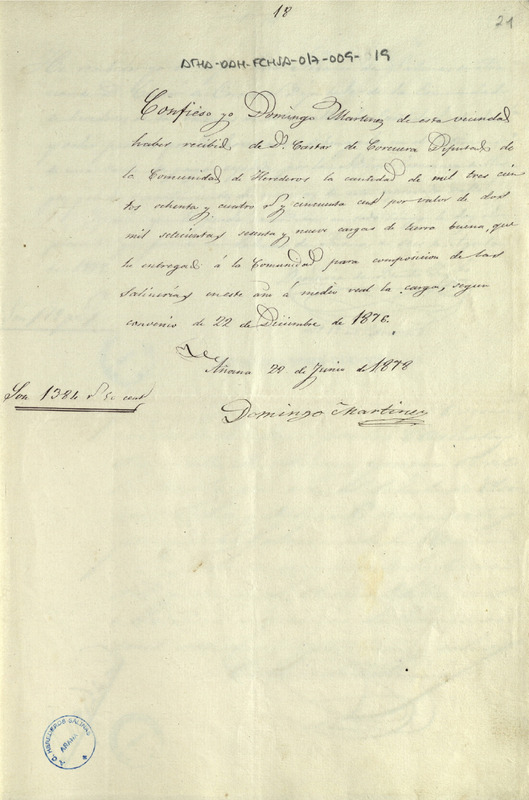 18
21
ATHA-DAH-FCHSA-017-009-19
Confieso yo Domingo Martinez de esta vecindad
haber recibido de Dn. Castor de Corcuera Diputado de
la Comunidad de Herederos la cantidad de mil tres cien
tos ochenta y cuatro rs y cincuenta cent por valor de dos
mil setecientas sesenta y nueve cargas de tierra buena, que
he entregado á la Comunidad para composicion de las
Salineras en este año á medio real la carga, segun
convenio de 22 de Diciembre de 1876.
Añana 29 de Junio de 1878
Son 1384 rs 50 cent
Domingo Martinez
C. HEREDEROS SALINAS
AÑANA